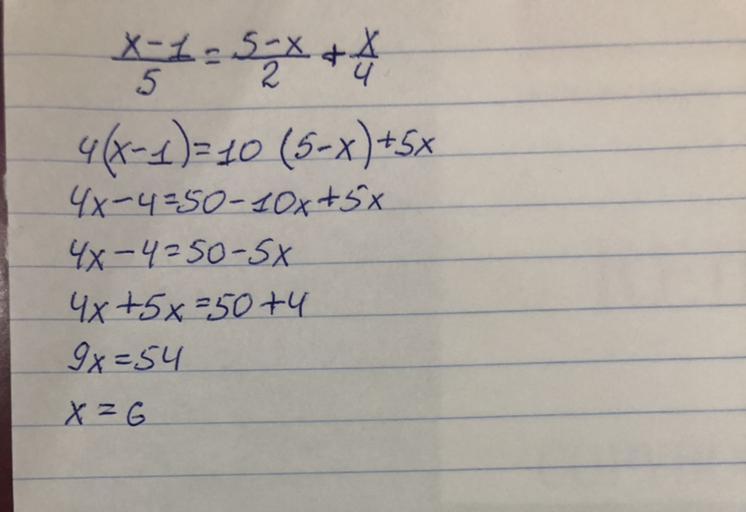 x-1/5 = 5-x/2 + x/4
4(x-1)=10 (5-x)+5x
4x-4=50-10x+5x
4x-4=50-5x
4x+5x=50+4
9x=54
x=6